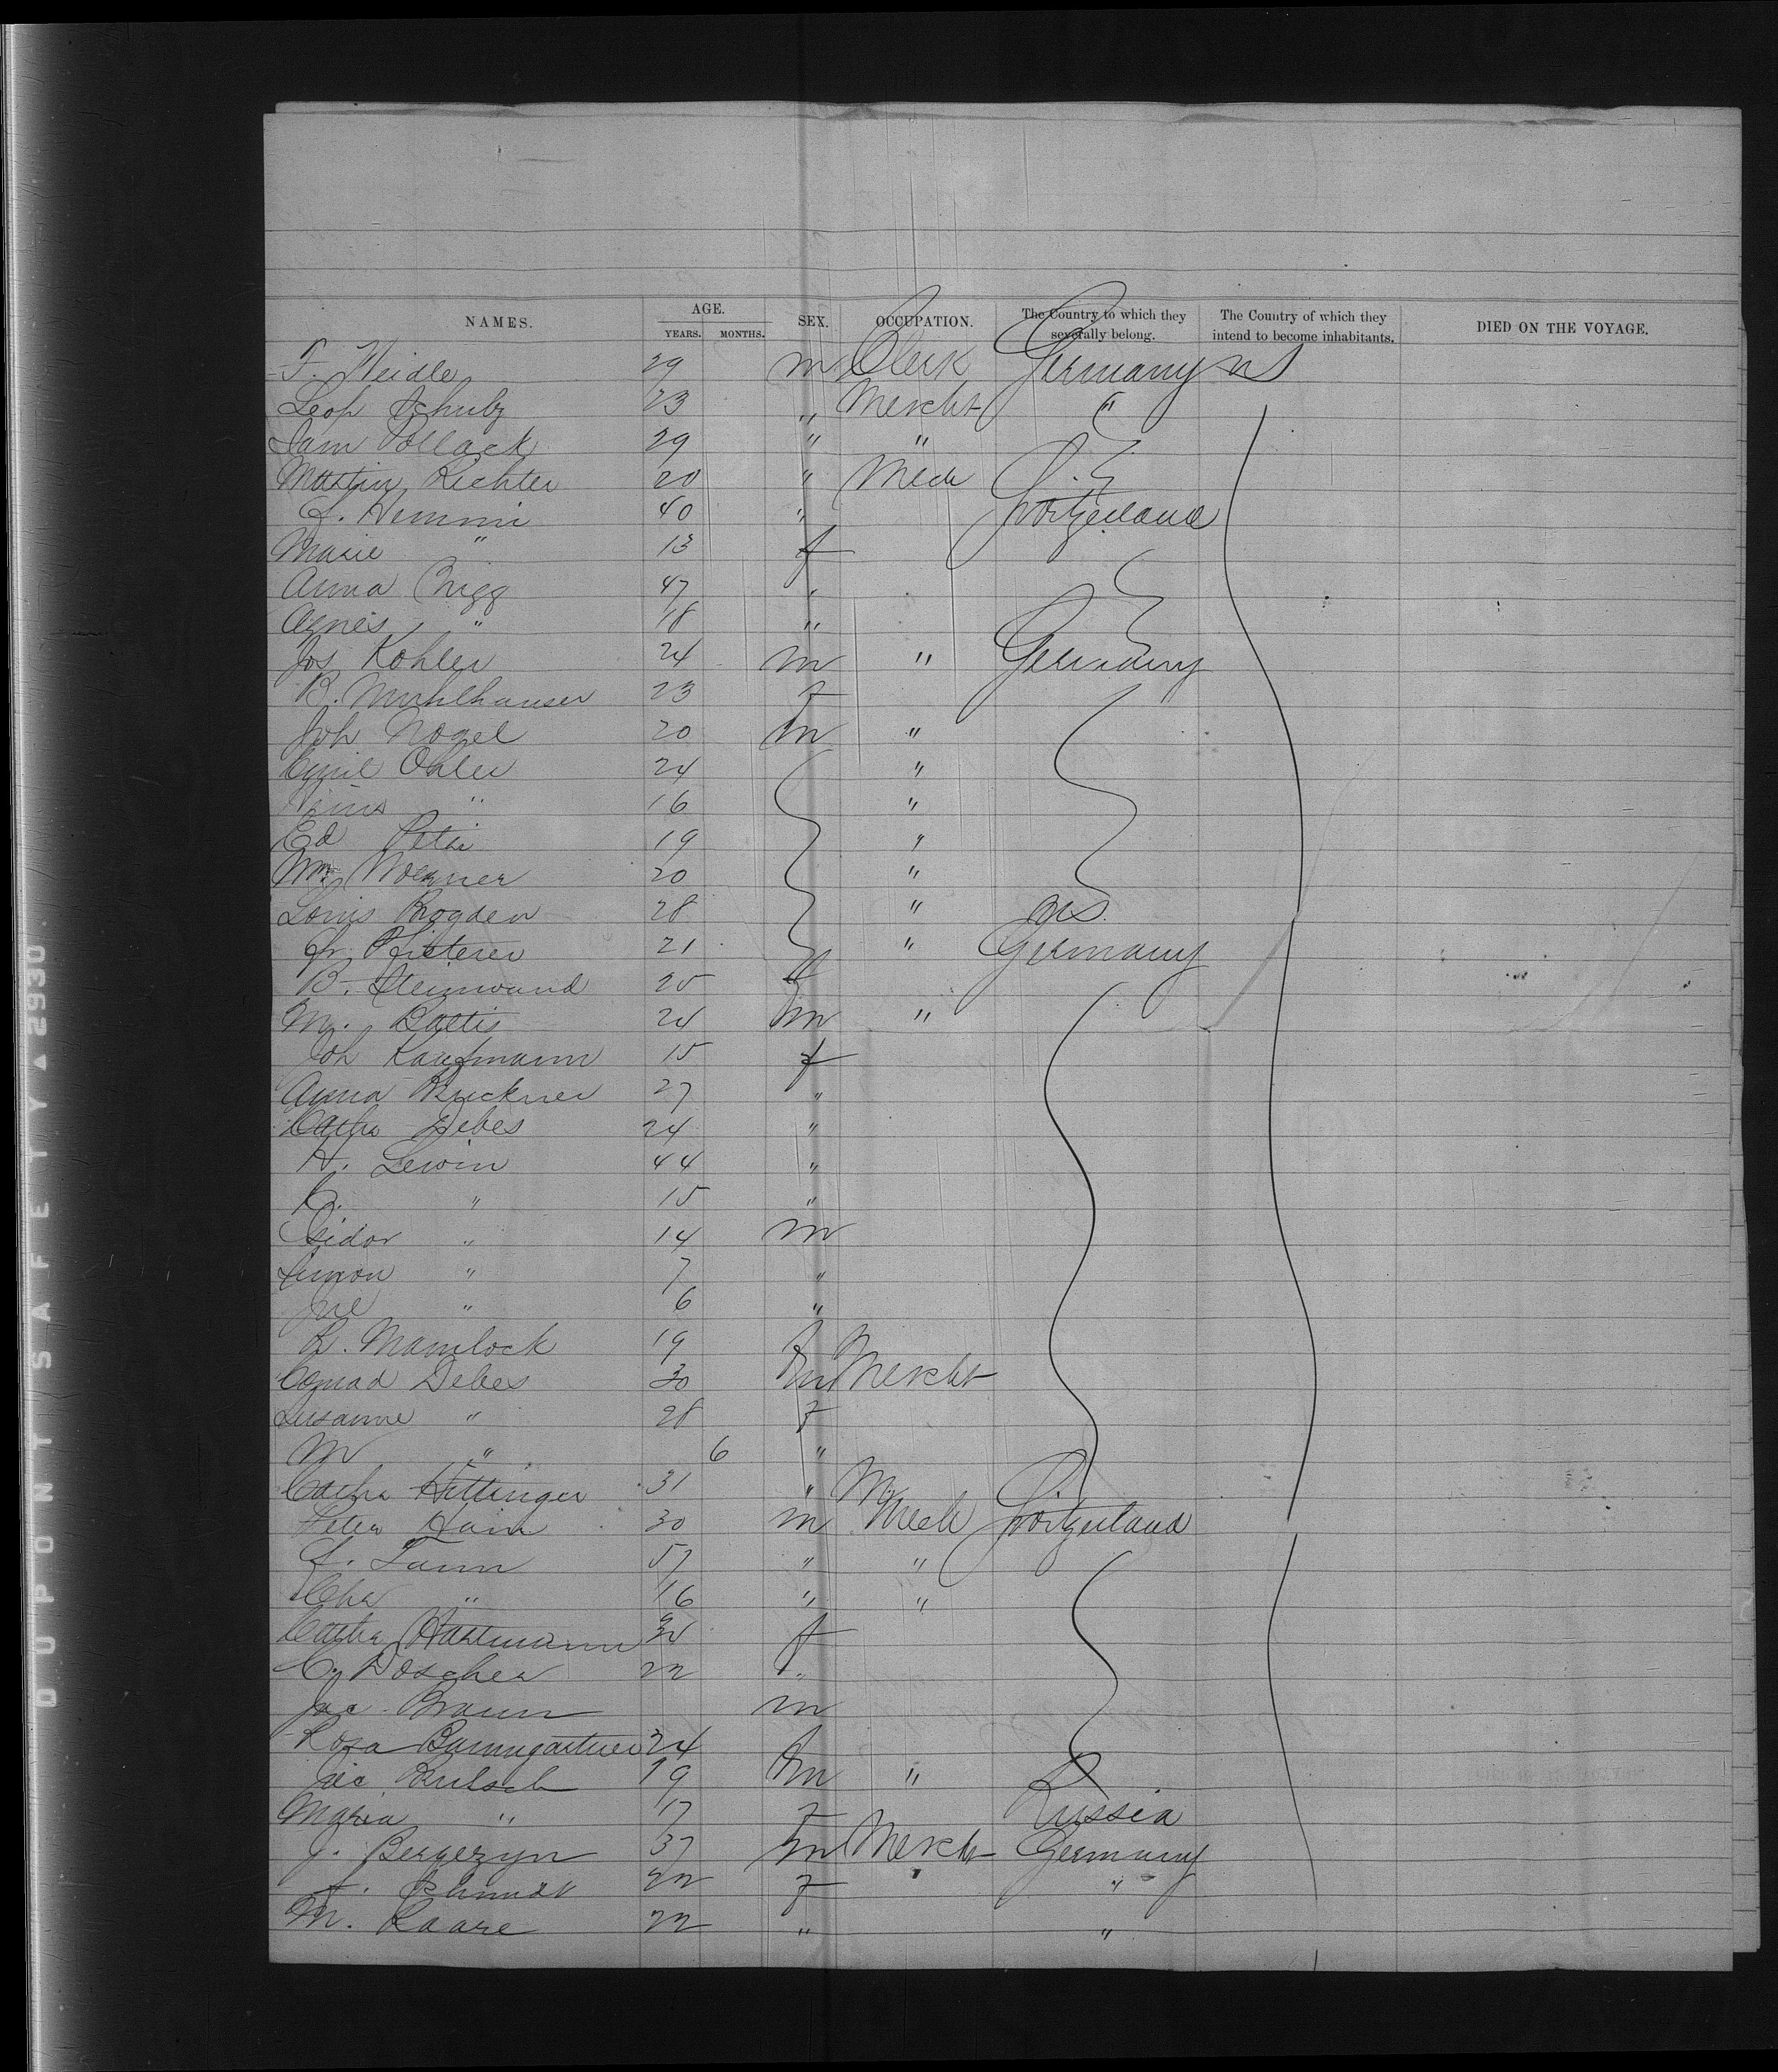 NAMES. AGE. YEARS. MONTHS. SEX. OCCUPATION. The Country to which they severally belong. The Country of which they intend to become inhabitants. DIED ON THE VOYAGE.
F. Weidle 29 m Clerk Germany US
Leop Schulz 23 " Mercht "
Sam Pollack 29 " "
Martin Richter 20 " Mech
F. Hemmi 40 " Switzerland
Marie " 13 f
Anna Brigg 47 "
Agnes " 18 "
Jos Kohler 24 m " Germany
B. Muhlhauser 23 f
Joh Nagel 20 m "
Cyril Ohler 24 "
" 16 "
Ed Petri 19 "
Wm Woerner 20 "
Louis Bogden 28 " US
Fr. Pfisterer 21 " Germany
B. Steinwand 25 f
M. Battis 24 m "
Joh Kaufmann 15 f
Anna Bruckner 27 "
Catha Debes 24 "
H. Lewin 44 "
" 15 "
Isidor " 14 m
Simon " 7 "
" 6 "
R. Mamlock 19 f
Conrad Debes 30 m Mercht
Susanne " 28 f
M " 6 "
Catha Hettinger 31 "
Peter Hain 30 m Mech Switzerland
F. Tann 57 " "
Chr " 16 " "
Catha Hartmann 34 f
C. Doscher 22 "
Jac Braun m
Rosa Baumgartner 24 f
Jac Rutsch 19 m "
Maria " 17 f Russia
J. Bergezyn 37 m Mercht Germany
F. Schmidt 22 f "
M. Raare 22 " "
DUPONT SAFETY ▲ 2930